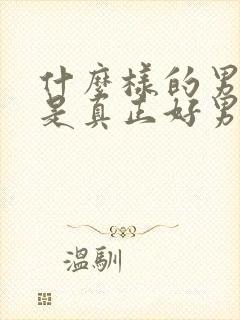 什麼樣的男
是真正好男
溫馴